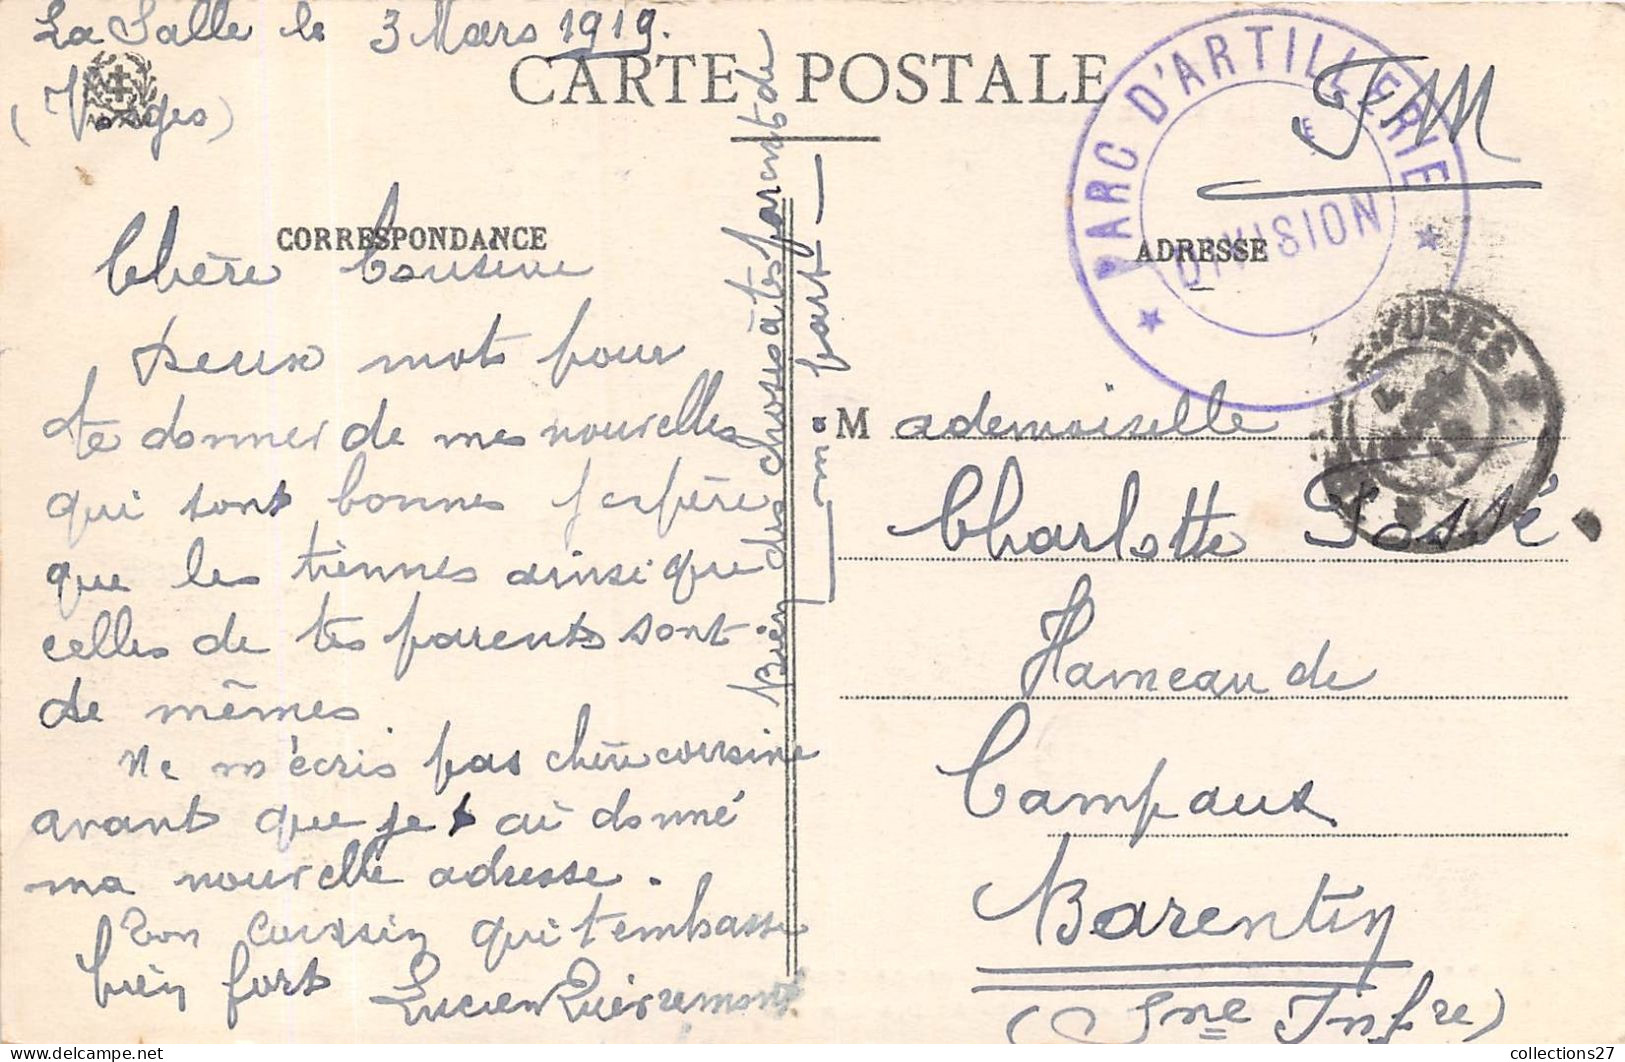 La Salle le 3 Mars 1919.
(Vosges)
CARTE POSTALE
F M
PARC D'ARTILLERIE
E
DIVISION
CORRESPONDANCE
ADRESSE
Chère Cousine
Deux mots pour
te donner de mes nouvelles
qui sont bonnes j'espère
que les tiennes ainsi que
celles de tes parents sont
de mêmes
Ne m'écris pas chère cousine
avant que je t ai donné
ma nouvelle adresse.
Ton cousin qui t'embasse
bien fort Lucien
Bien des choses à tes parents de
ma part
Mademoiselle
Charlotte Fossé.
Hameau de
Campeaux
Barentin
(Sne Infre)
collections27